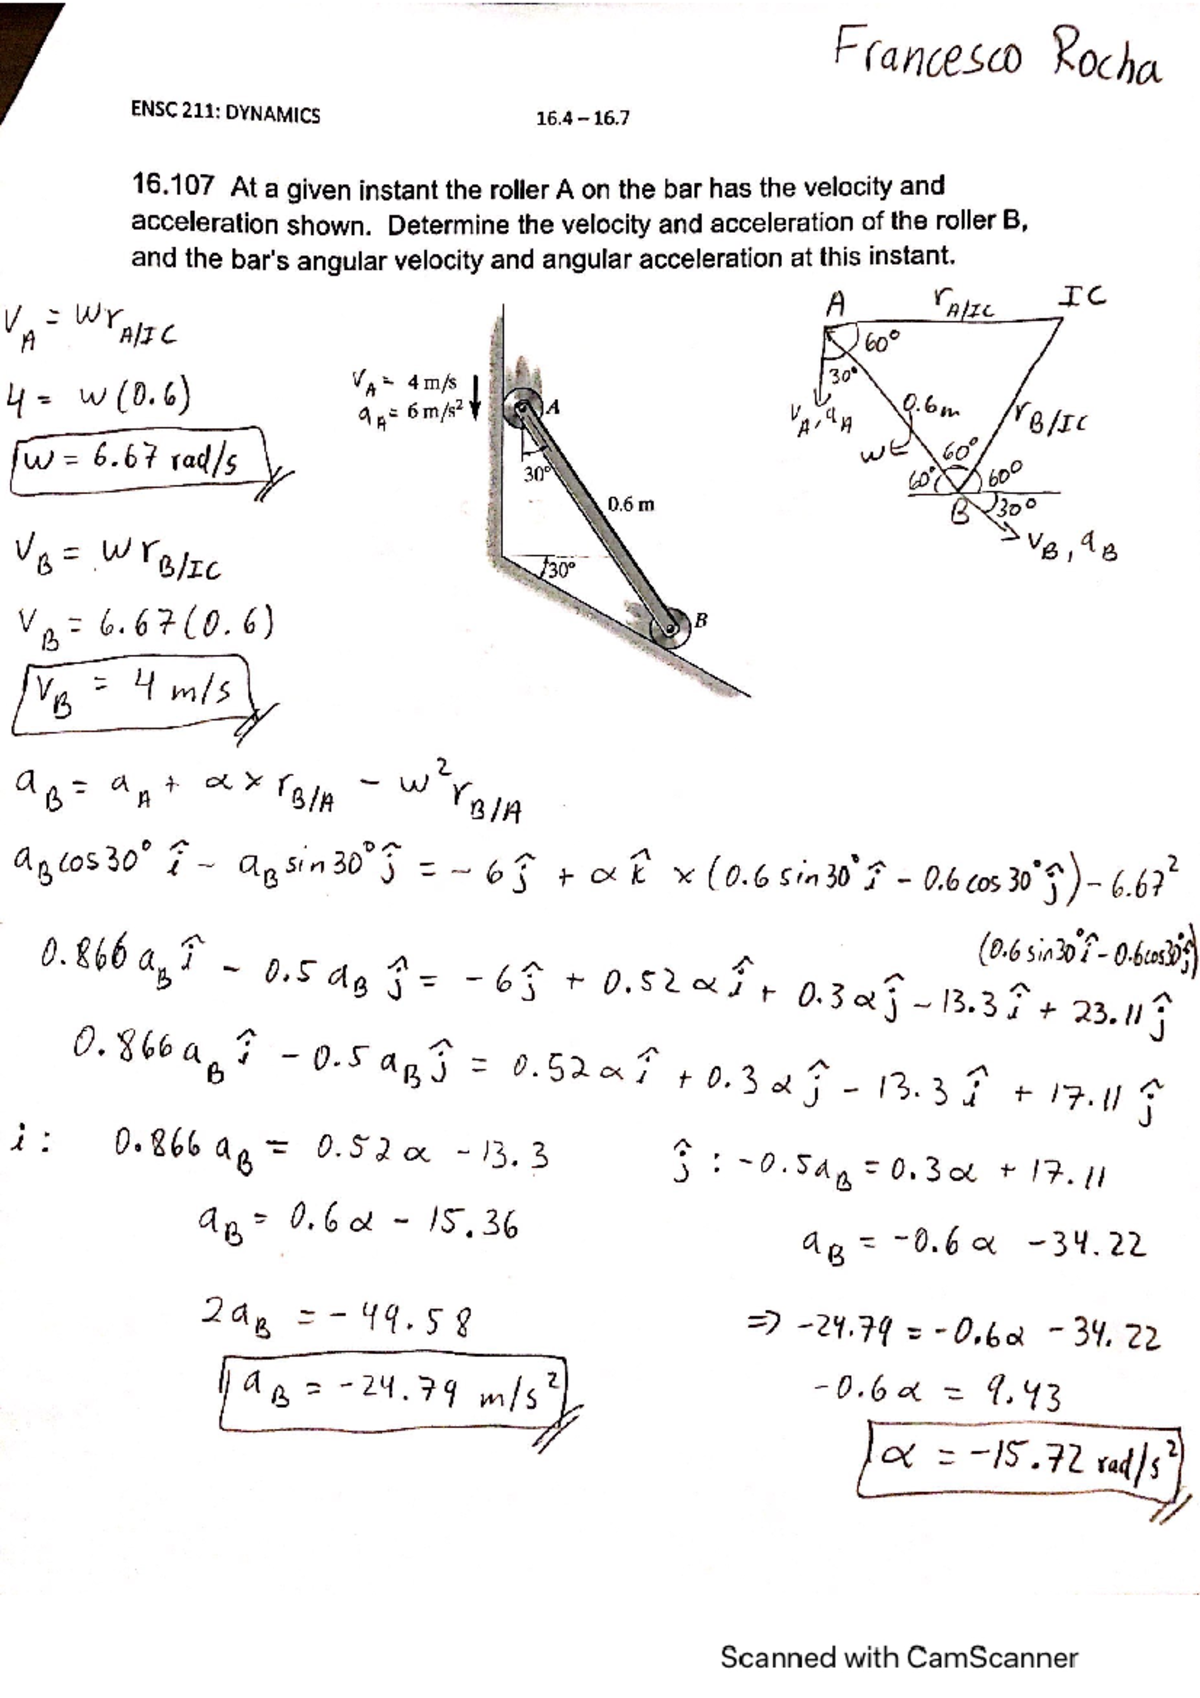 Francesco Rocha
ENSC 211: DYNAMICS
16.4 – 16.7
16.107 At a given instant the roller A on the bar has the velocity and
acceleration shown. Determine the velocity and acceleration of the roller B,
and the bar's angular velocity and angular acceleration at this instant.
V_A = w r_A/IC
4 = w (0.6)
w = 6.67 rad/s
V_B = w r_B/IC
V_B = 6.67 (0.6)
V_B = 4 m/s
V_A = 4 m/s
a_A = 6 m/s²
A
30°
0.6 m
30°
B
A
r_A/IC
IC
60°
30°
V_A, a_A
0.6m
r_B/IC
w
60°
60°
60°
B
30°
V_B, a_B
a_B = a_A + α × r_B/A − w² r_B/A
a_B cos30° î − a_B sin30° ĵ = − 6 ĵ + α k̂ × (0.6 sin30° î − 0.6 cos30° ĵ) − 6.67²
(0.6 sin30° î − 0.6cos30° ĵ)
0.866 a_B î − 0.5 a_B ĵ = − 6 ĵ + 0.52 α î + 0.3 α ĵ − 13.3 î + 23.11 ĵ
0.866 a_B î − 0.5 a_B ĵ = 0.52 α î + 0.3 α ĵ − 13.3 î + 17.11 ĵ
i : 0.866 a_B = 0.52 α − 13.3
ĵ : −0.5a_B = 0.3α + 17.11
a_B = 0.6 α − 15.36
a_B = −0.6 α − 34.22
2 a_B = − 49.58
⇒ −24.79 = −0.6α − 34.22
a_B = −24.79 m/s²
−0.6 α = 9.43
α = −15.72 rad/s²
Scanned with CamScanner